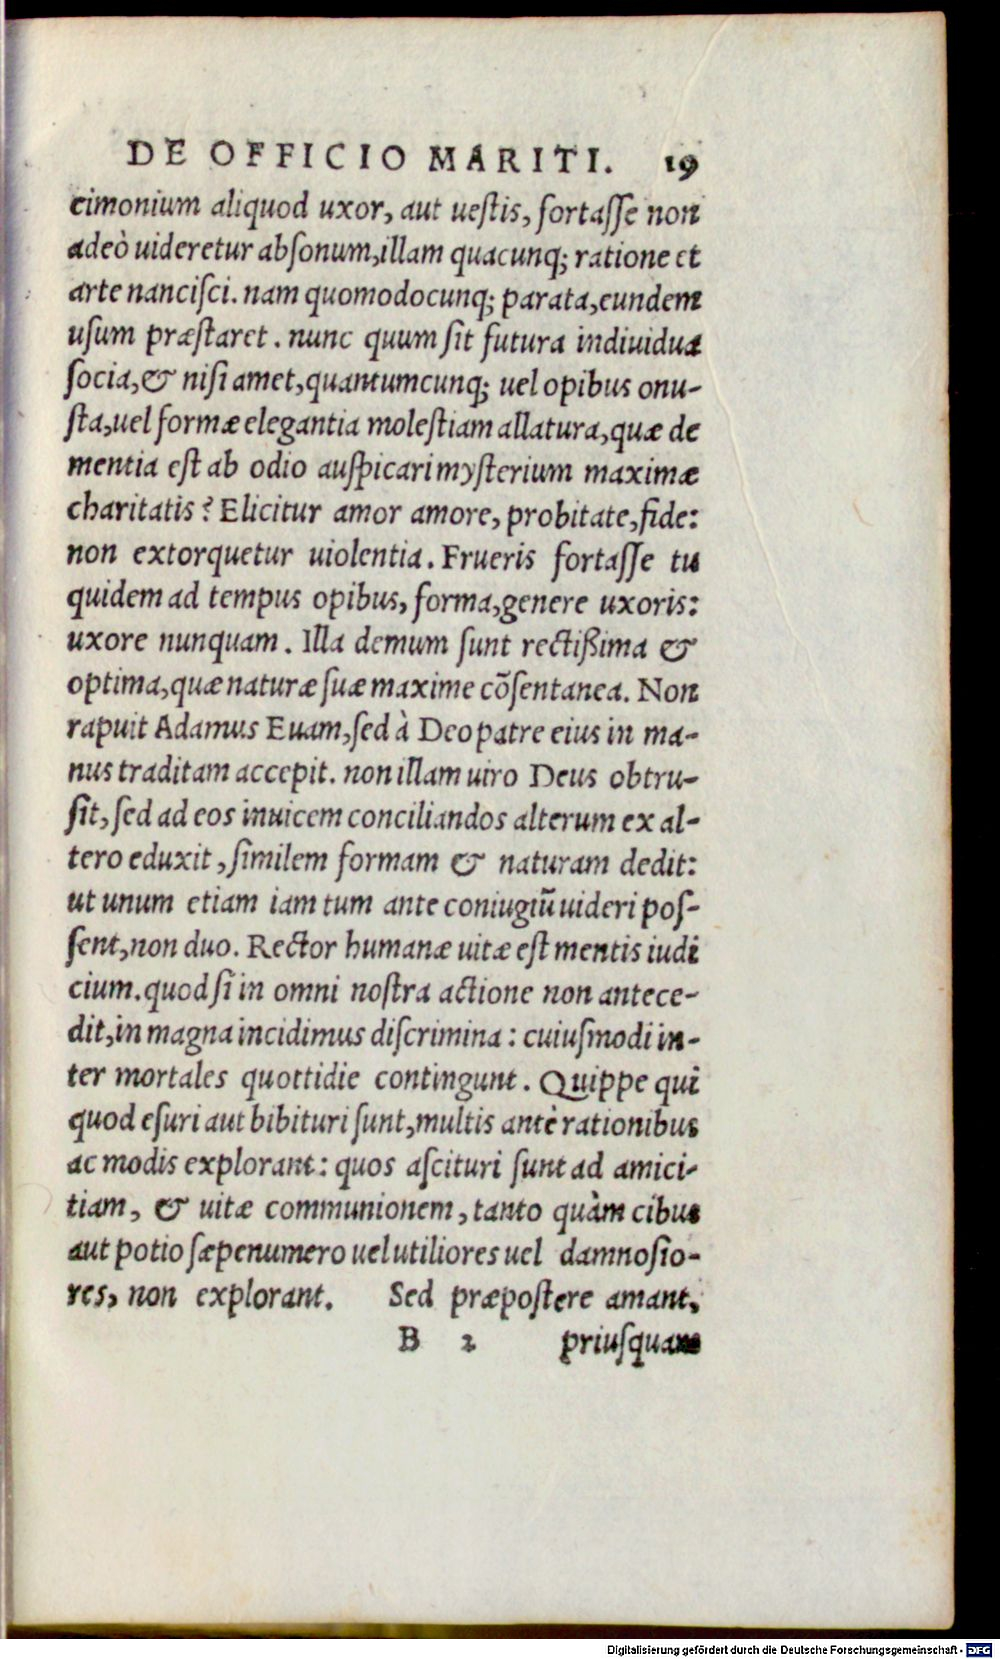 DE OFFICIO MARITI. 19
cimonium aliquod uxor, aut ueſtis, fortaſſe non
adeò uideretur abſonum, illam quacunq; ratione et
arte nanciſci. nam quomodocunq; parata, eundem
uſum præſtaret. nunc quum ſit futura indiuidua
ſocia, & niſi amet, quantumcunq; uel opibus onu-
ſta, uel formæ elegantia moleſtiam allatura, quæ de
mentia eſt ab odio auſpicari myſterium maximæ
charitatis? Elicitur amor amore, probitate, fide:
non extorquetur uiolentia. Frueris fortaſſe tu
quidem ad tempus opibus, forma, genere uxoris:
uxore nunquam. Illa demum ſunt rectißima &
optima, quæ naturæ ſuæ maxime cõſentanea. Non
rapuit Adamus Euam, ſed à Deo patre eius in ma-
nus traditam accepit. non illam uiro Deus obtru-
ſit, ſed ad eos inuicem conciliandos alterum ex al-
tero eduxit, ſimilem formam & naturam dedit:
ut unum etiam iam tum ante coniugiũ uideri poſ-
ſent, non duo. Rector humanæ uitæ eſt mentis iudi
cium. quod ſi in omni noſtra actione non antece-
dit, in magna incidimus diſcrimina: cuiuſmodi in-
ter mortales quottidie contingunt. Quippe qui
quod eſuri aut bibituri ſunt, multis antè rationibus
ac modis explorant: quos aſcituri ſunt ad amici-
tiam, & uitæ communionem, tanto quàm cibus
aut potio ſæpenumero uel utiliores uel damnoſio-
res, non explorant. Sed præpoſtere amant,
B 2 priuſquam
Digitalisierung gefördert durch die Deutsche Forschungsgemeinschaft - DFG